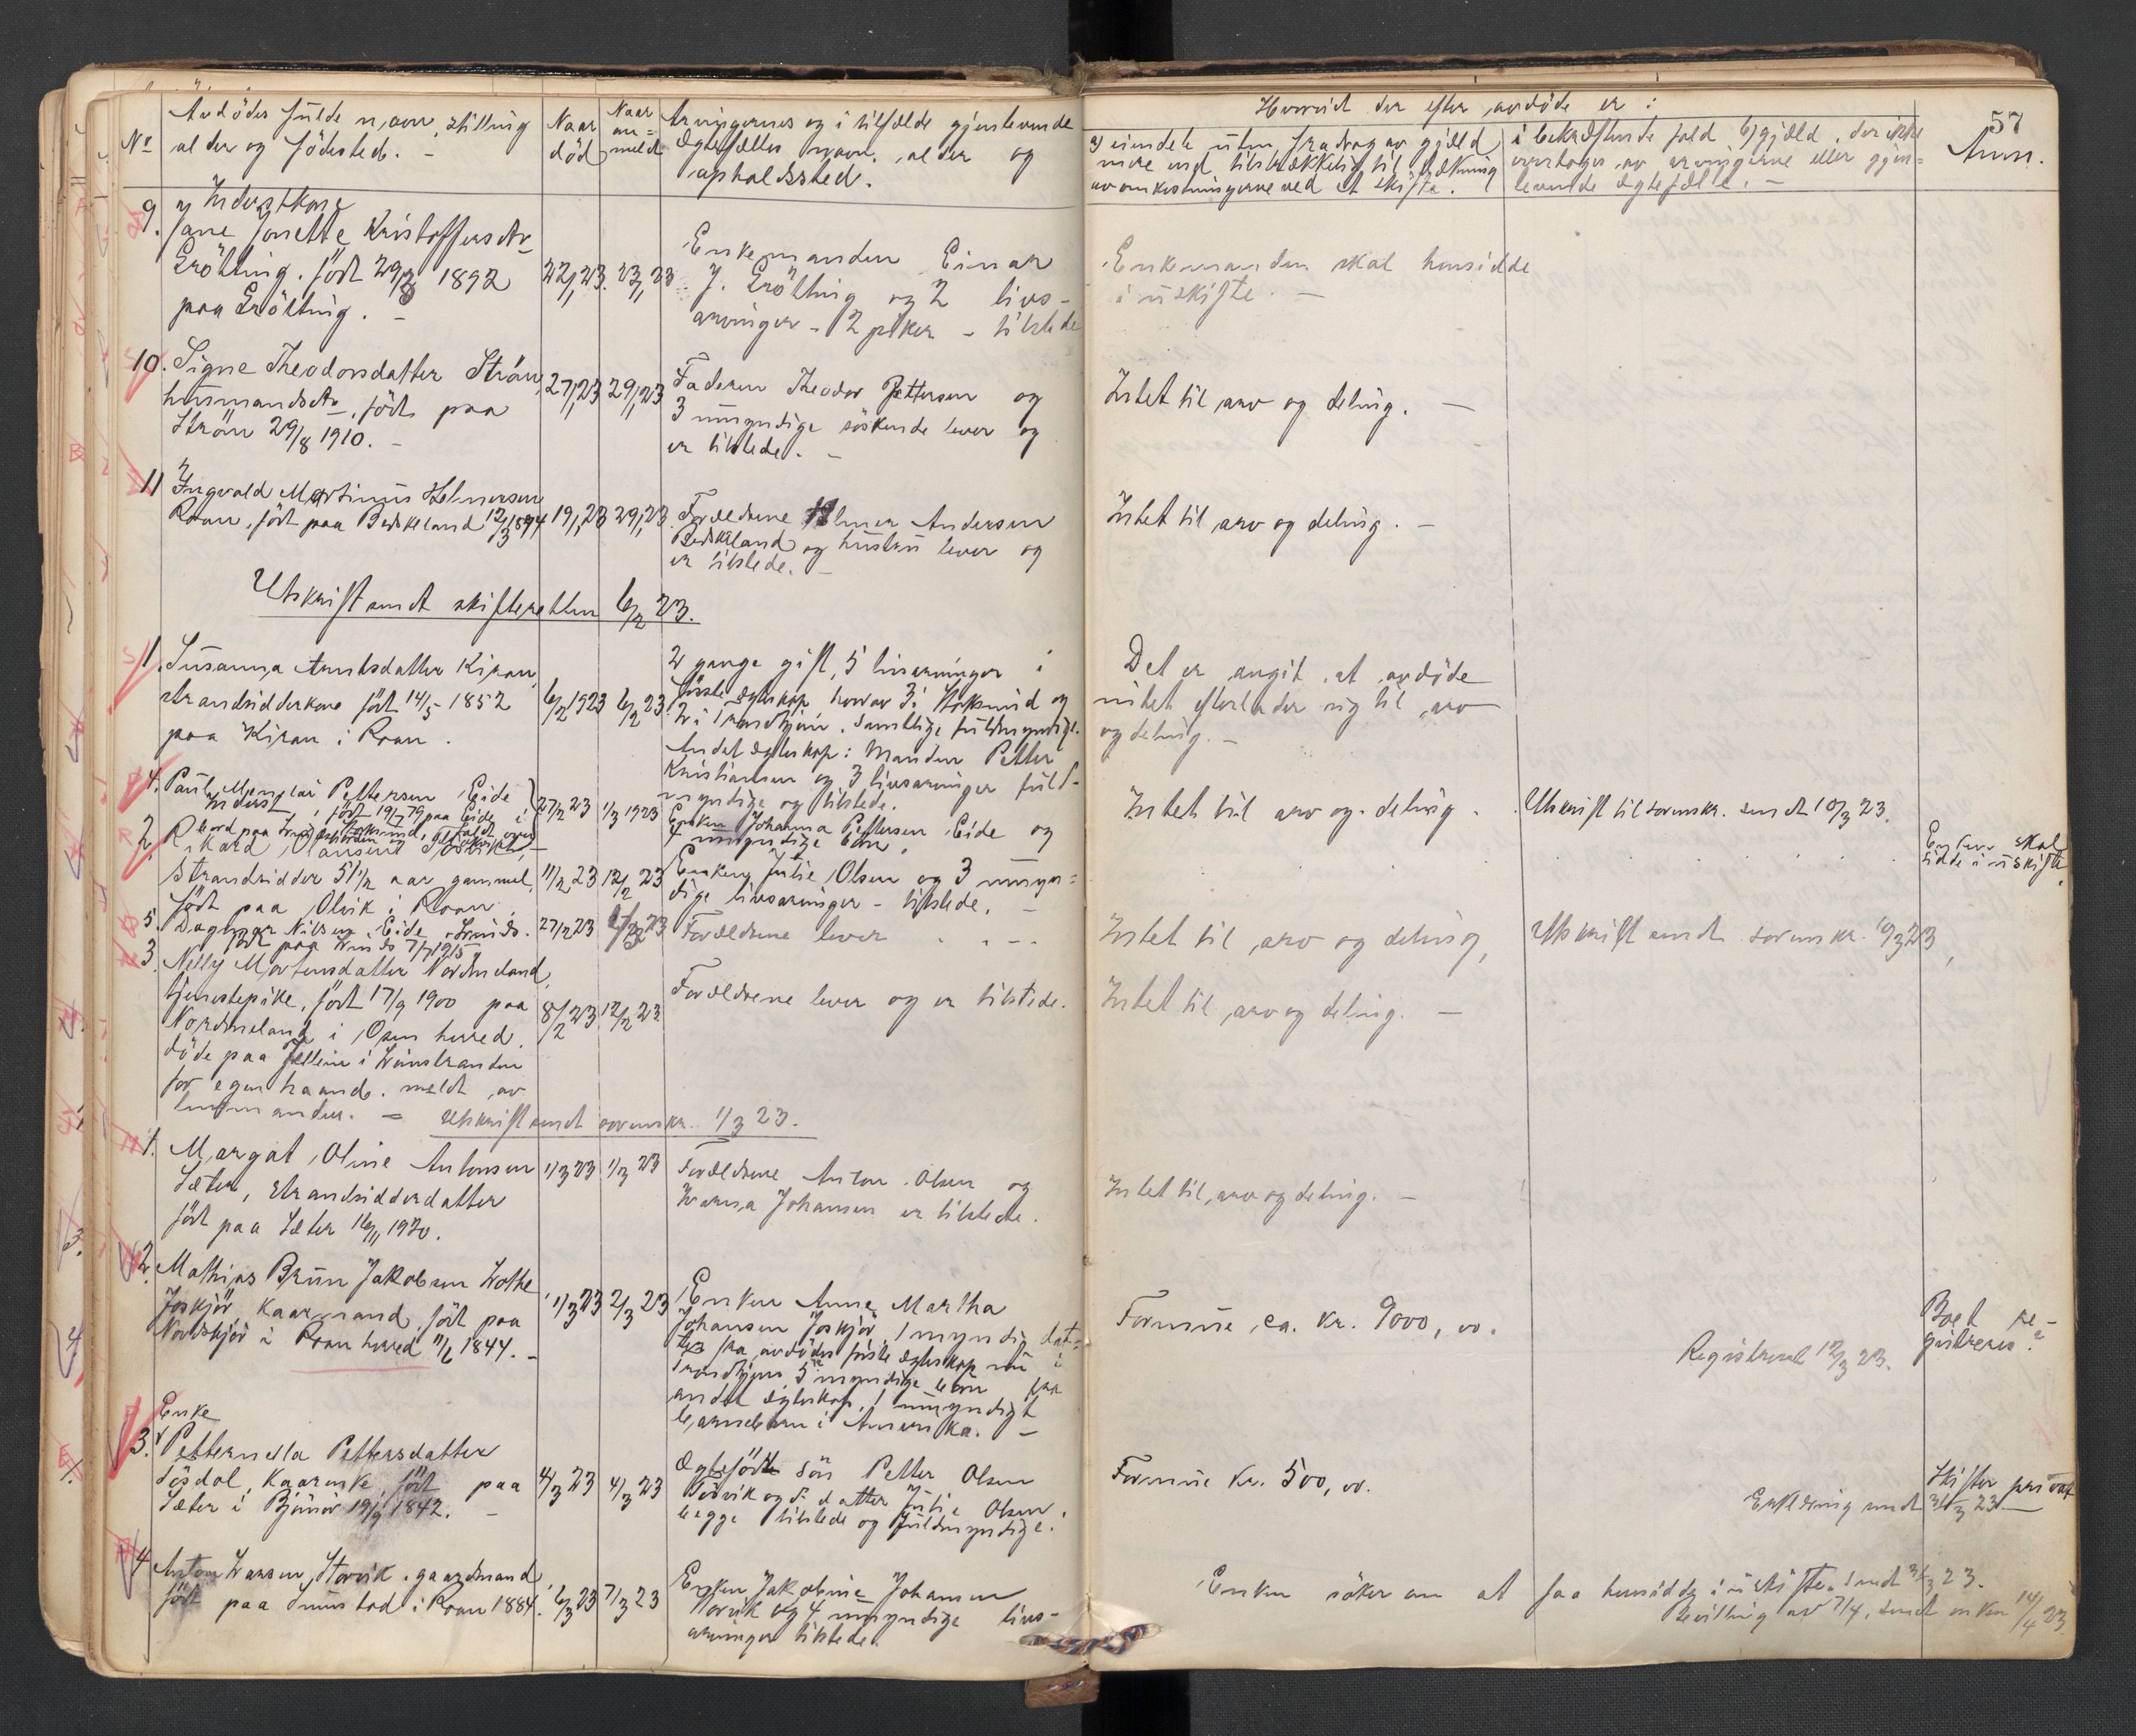 Hvorvidt der efter avdöde er:
57
No
Avdödes fulde navn, stilling
alder og födested. -
Naar
död
Naar
an=
meldt
Arvingernes og i tilfælde gjenlevende
Ægtefælles navn, alder og
opholdssted.
a) eiendele uten fradrag av gjæld
mere end tilstrækkelig til dækning
av omkostningerne ved et skifte.
i bekræftende fald b) gjæld, der ikke
overtages av arvingerne eller gjen=
levende ægtefælle. -
Anm.
9.
Inderstkone
Jane Jonette Kristoffersdtr
Grötting. födt 29/8 1892
paa Grötting. -
22/1 23. 23/1 23
Enkemanden Einar
J. Grötting og 2 livs-
arvinger - 2 piker - tilstede
Enkemanden skal hensidde
i uskifte. -
10.
Signe Theodorsdatter Ström
husmandsdtr, födt paa
Ström 29/8 1910. -
27/1 23 29/1 23
Faderen Theodor Pettersen og
3 umyndige söskende lever og
er tilstede. -
Intet til arv og deling. -
11
Ingvald Martinus Helmersen
Roan, födt paa Beskeland 12/3 1894
19/1 23 29/1 23
Forældrene Helmer Andersen
Beskeland og hustru lever og
er tilstede. -
Intet til arv og deling. -
Utskrift sendt skifteretten 6/2 23.
1.
Susanna Arntsdatter Kiran,
strandsidderkone födt 14/5 1852
paa Kiran i Roan.
6/2 1923 6/2 23
2 gange gift, 5 livsarvinger i
förste ægteskap hvorav 3 i Stoksund og
2 i Trondhjem. Samtlige fuldmyndige.
Andet ægteskap: Manden Petter
Kristiansen og 3 livsarvinger fuld-
myndige og tilstede.
Det er angit at avdöde
intet efterlader sig til arv
og deling. -
4.
Paul Pettersen Eide
Inderst, födt 19/7 79 paa Eide i
27/2 23 1/3 1923
Enken Johanna Pettersen Eide og
4 umyndige börn.
Intet til arv og deling.
Utskrift til sorenskr. sendt 10/3 23.
Enken skal
sidde i uskifte.
2.
Rikard Olausen
Strandsidder 51 1/2 aar gammel,
födt paa Olvik i Roan.
11/2 23 12/2 23
Enken Julie Olsen og 3 umyn=
dige livsarvinger - tilstede. -
5.
Dagmar Nilsen Eide
födt paa 7/7 1915
27/2 23
Forældrene lever
Intet til arv og deling,
Utskrift sendt sorenskr. 10/3 23,
3.
Nelly Mortensdatter Nordmeland,
tjenestepike, födt 17/9 1900 paa
Nordmeland i Osen herred.
döde paa i
for egen haand. meldt av
lensmanden. =
8/2 23 12/2 23
Forældrene lever og er tilstede.
Intet til arv og deling. -
Utskrift sendt sorenskr. 1/3 23.
1.
Margot Oline Antonsen
Sæter, strandsidderdatter
födt paa Sæter 16/11 1920.
1/3 23 1/3 23
Forældrene Anton Olsen og
Johansen er tilstede.
Intet til arv og deling. -
2.
Mathias Brun Jakobsen
kaarmand, födt paa
Nordskjör i Roan herred 11/6 1844. -
1/3 23 2/3 23
Enken Anne Martha
Johansen 1 myndig dat=
ter fra avdödes förste ægteskap nu i
Trondhjem, 5 myndige börn fra
andet ægteskap, 1 umyndigt
barnebarn i Amerika. -
Formue ca. kr. 9000,00.
Registreret 12/3 23.
Boet re-
gistreres.
3.
Enke
Petternella Pettersdatter
kaarenke födt paa
Sæter i Björnör 19/9 1842. -
4/3 23 4/3 23
Ægtefödte sön Petter Olsen
og d. datter Julie Olsen
begge tilstede og fuldmyndige.
Formue kr. 500,00.
Erklæring sendt 31/3 23
Skifter privat
4
Anton Larsen Storvik. gaardmand,
födt paa Sumstad i Roan 1884.
6/3 23 7/3 23
Enken Jakobine Johansen
Storvik og 4 umyndige livs-
arvinger tilstede.
Enken söker om at faa hensidde i uskifte. Sendt 23.
bevilling av 7/4, sendt enken 14/4 23.